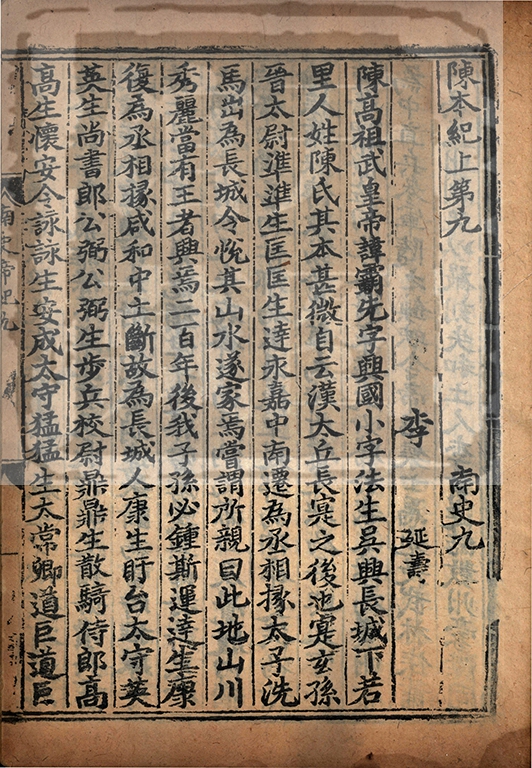 陳本紀上第九 南史九
李 延壽
陳高祖武皇帝諱霸先字興國小字法生吳興長城下若
里人姓陳氏其本甚微自云漢太丘長寔之後也寔玄孫
晉太尉準準生匡匡生逹永嘉中南遷為丞相掾太子洗
馬出為長城令恱其山水遂家焉嘗謂所親曰此地山川
秀麗當有王者興焉二百年後我子孫必鍾斯運逹生康
復為丞相掾咸和中土斷故為長城人康生盱台太守英
英生尚書郎公弼公弼生步兵校尉鼎鼎生散騎侍郎高
高生懷安令詠詠生安成太守猛猛生太常卿道巨道巨